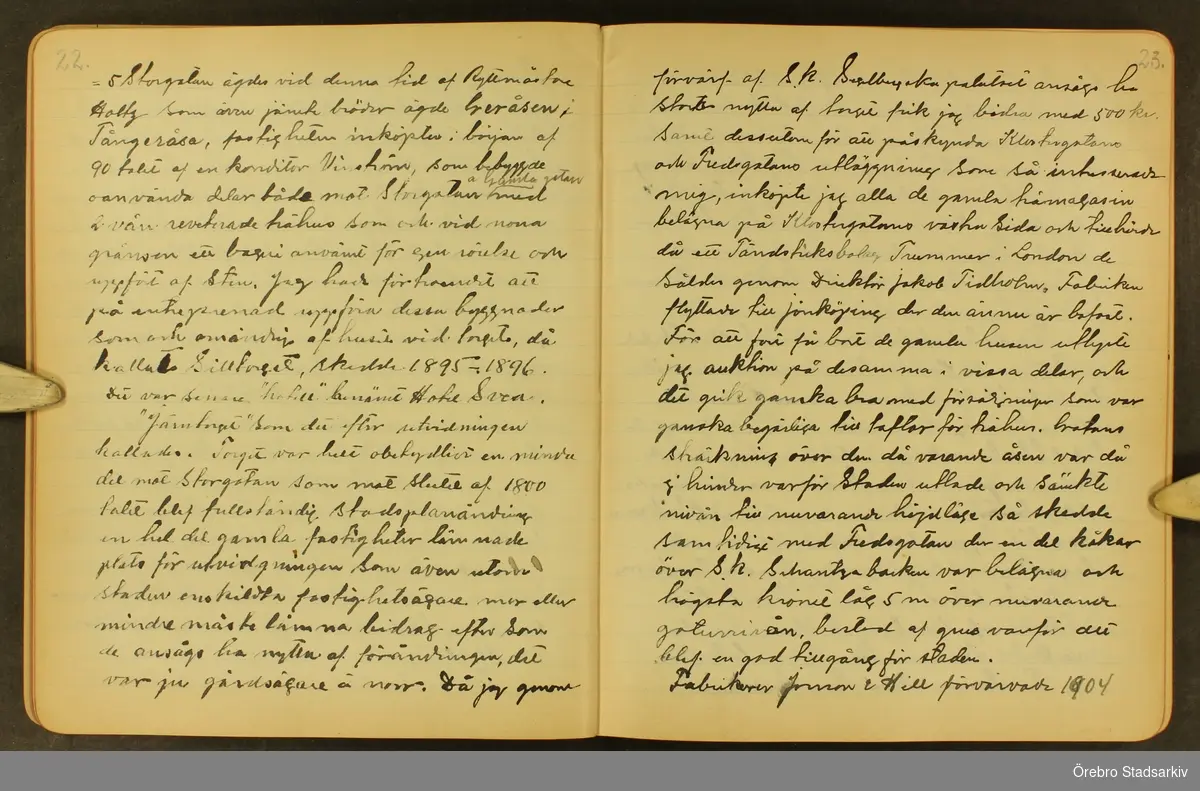 22.
= 5 Storgatan ägdes vid denna tid af Ryttmästare
Holtz som även jämte bröder ägde Geråsen i
Tångeråsa, fastigheten inköptes i början af
90 talet af en konditor Vinström, som bebyggde
a Gamla gatan
oanvända delar både mot Storgatan med
2 vån. reveterade trähus som och vid norra
gränsen ett bageri använt för egen rörelse och
uppfört af Sten. Jag hade förtroendet att
på entreprenad uppföra dessa byggnader
som och omändrig af huset vid torget, då
kallats Silltorget, skedde 1895 = 1896.
Det var senare "hotell" benämt Hotel Svea.
"Järntorget" som det efter utvidningen
kallades. Torget var helt obetydligt en mindre
del mot Storgatan som mot slutet af 1800
talet blef fullständig stadsplanändring
en hel del gamla fastigheter lämnade
plats för utvidgningen som även utom
staden enskildta fastighetsägare mer eller
mindre måste lämna bidrag efter som
de ansågs ha nytta af förändringen, det
var ju gårdsägare å norr. Då jag genom
23.
förvärf af S.k. palatset ansågs ha
större nytta af torget fick jag bidra med 500 kr.
samt dessutom för att påskynda Klostergatans
och Fredsgatans utläggning som så intresserade
mig, inköpte jag alla de gamla trämagasin
belägna på Klostergatans västra Sida och tillhörde
då ett Tändsticksbolag Trummer i London de
såldes genom Direktör Jakob Tidholm, Fabriken
flyttade till Jönköping der den ännu är befost.
För att fort få bort de gamla husen utlyste
jag auktion på desamma i vissa delar, och
det gick ganska bra med försäljningen som var
ganska begärliga till taflar för trähus. Gatans
sträckning över den då varande åsen var då
ej hinder varför Staden utlade och sänkte
nivån till nuvarande höjdläge så skedde
samtidigt med Fredsgatan der en del kåkar
över S.k. Schantza backen var belägna och
högsta krönet låg 5 m över nuvarande
gatunivån, bestod af grus varför det
blef en god tillgång för staden.
Fabrikörer Jonson & Hill förvärvade 1904
Örebro Stadsarkiv